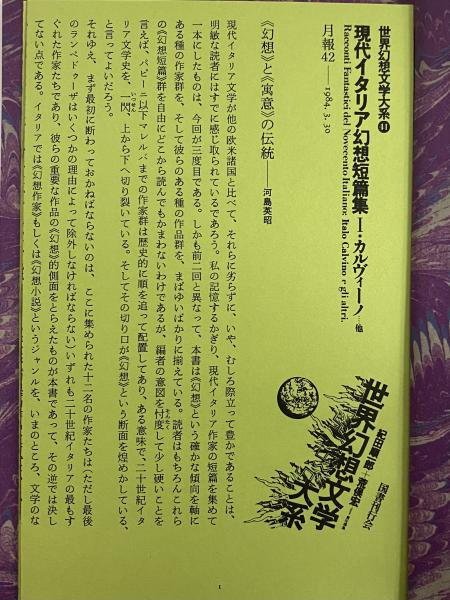 世界幻想文学大系41
現代イタリア幻想短篇集 I・カルヴィーノ…他
Racconti Fantastici del Novecento Italiano: Italo Calvino e gli altri.
月報42 ── 1984. 3. 30
世界幻想文学大系
紀田順一郎
荒俣宏
国書刊行会
《幻想》と《寓意》の伝統──河島英昭
現代イタリア文学が他の欧米諸国と比べて、それらに劣らずに、いや、むしろ際立って豊かであることは、
明敏な読者にはすでに感じ取られているであろう。私の記憶するかぎり、現代イタリア作家の短篇を集めて
一本にしたものは、今回が三度目である。しかも前二回と異なって、本書は《幻想》という確かな傾向を軸に
ある種の作家群を、そして彼らのある種の作品群を、まばゆいばかりに揃えている。読者はもちろんこれら
の《幻想短篇》群を自由にどこから読んでもかまわないわけであるが、編者の意図を忖度して少し硬いことを
言えば、パピーニ以下マレルバまでの作家群は歴史的に順を追って配置してあり、ある意味で、二十世紀イタ
リア文学史を、一閃、上から下へ切り裂いている。そしてその切り口が《幻想》という断面を煌めかしている、
と言ってよいだろう。
それゆえ、まず最初に断わっておかねばならないのは、ここに集められた十二名の作家たちは（ただし最後
のランペドゥーザはいくつかの理由によって除外しなければならない）いずれも二十世紀イタリアの最もす
ぐれた作家たちであり、彼らの重要な作品の《幻想》的側面をとらえたものが本書であって、その逆では決し
てない点である。イタリアでは《幻想作家》もしくは《幻想小説》というジャンルを、いまのところ、文学のな
1